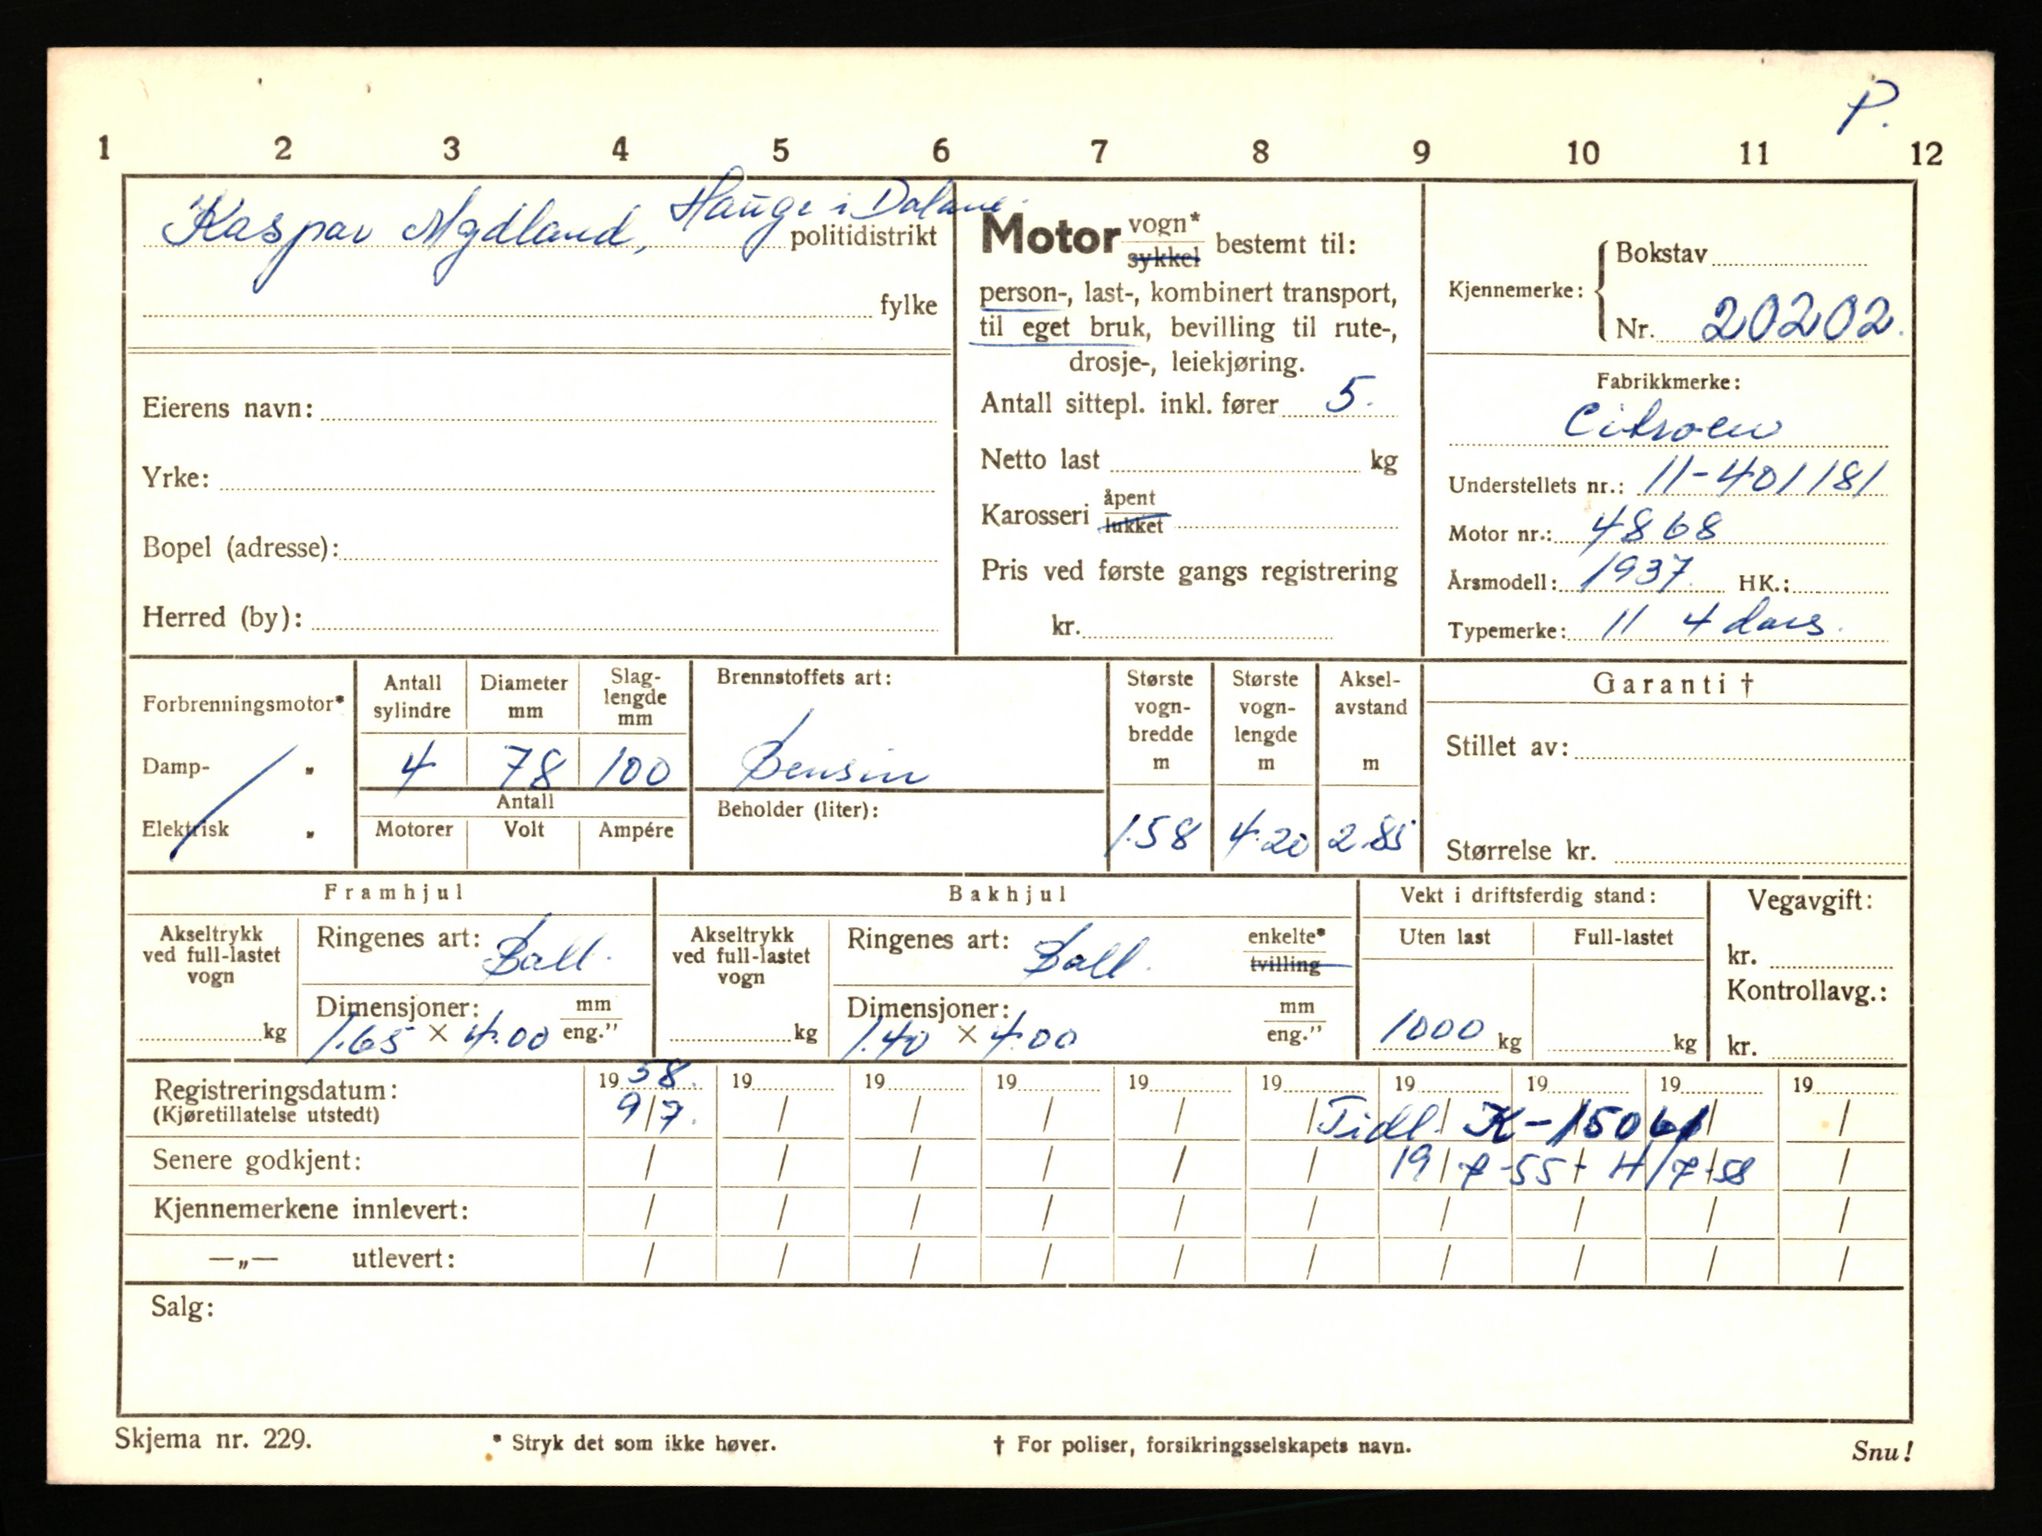 P.
1 2 3 4 5 6 7 8 9 10 11 12
Kaspar Mydland, Hauge i Dalane.
politidistrikt
fylke
Eierens navn:
Yrke:
Bopel (adresse):
Herred (by):
Motor vogn* sykkel bestemt til:
person-, last-, kombinert transport,
til eget bruk, bevilling til rute-,
drosje-, leiekjøring.
Antall sittepl. inkl. fører 5.
Netto last kg
Karosseri åpent lukket
Pris ved første gangs registrering
kr.
Kjennemerke: Bokstav
Nr. 20202.
Fabrikkmerke:
Citroen
Understellets nr.: 11-401181
Motor nr.: 4868
Årsmodell: 1937. HK.:
Typemerke: 11 4 dørs.
Forbrenningsmotor*
Damp- "
Elektrisk "
Antall sylindre
Diameter mm
Slag-lengde mm
4 78 100
Antall
Motorer Volt Ampére
Brennstoffets art:
Bensin
Beholder (liter):
Største vogn-bredde m
Største vogn-lengde m
Aksel-avstand m
1.58 4.20 2.85
Garanti †
Stillet av:
Størrelse kr.
Framhjul
Akseltrykk ved full-lastet vogn
kg
Ringenes art: Ball.
Dimensjoner: mm eng."
1.65 × 4.00
Bakhjul
Akseltrykk ved full-lastet vogn
kg
Ringenes art: Ball. enkelte* tvilling
Dimensjoner: mm eng."
1.40 × 4.00
Vekt i driftsferdig stand:
Uten last Full-lastet
1000 kg kg
Vegavgift:
kr.
Kontrollavg.:
kr.
Registreringsdatum: 1958. 19 19 19 19 19 19 19 19 19
(Kjøretillatelse utstedt) 9/7. / / / / / Tidl. K-15061 /
Senere godkjent: / / / / / / 19/7-55- H/7-58 /
Kjennemerkene innlevert: / / / / / / / / / /
—„— utlevert: / / / / / / / / / /
Salg:
Skjema nr. 229.
* Stryk det som ikke høver.
† For poliser, forsikringsselskapets navn.
Snu!